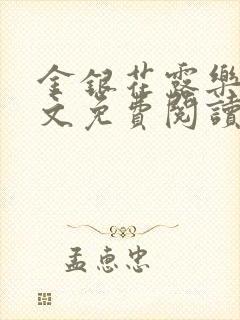 金銀花露樂
文免費閱讀
孟惠忠